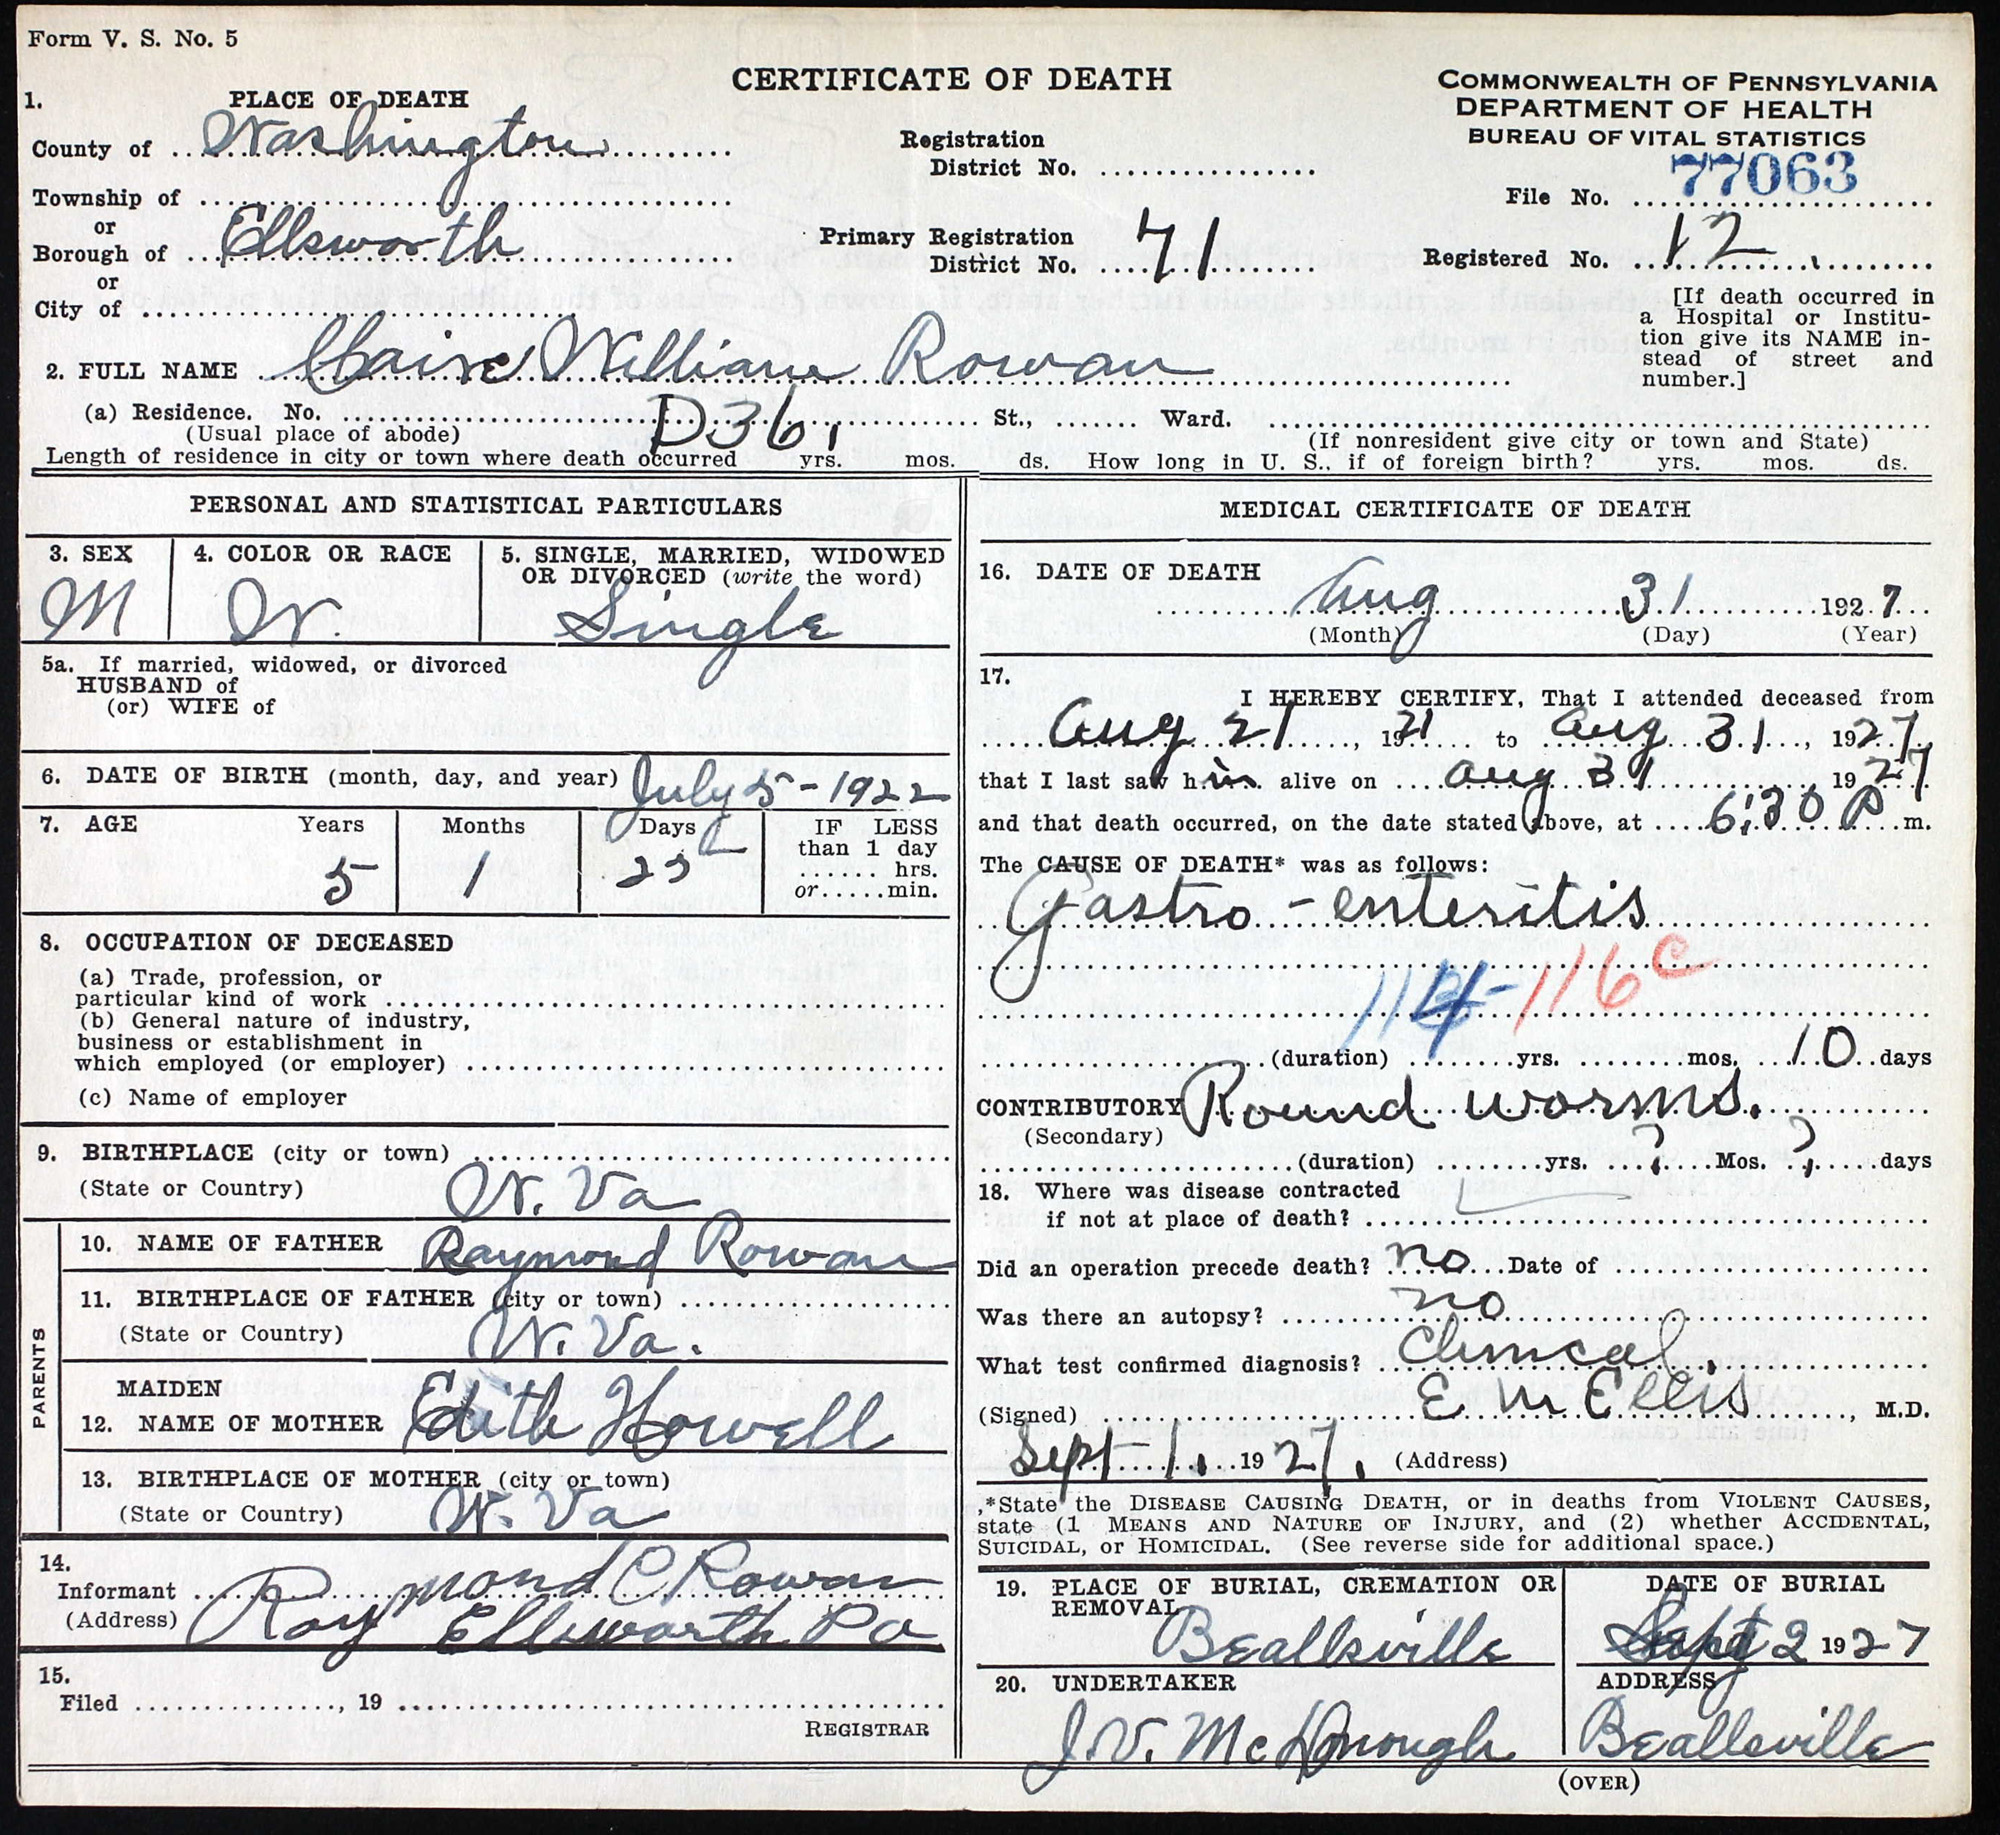 Form V. S. No. 5
CERTIFICATE OF DEATH
COMMONWEALTH OF PENNSYLVANIA
DEPARTMENT OF HEALTH
BUREAU OF VITAL STATISTICS
1. PLACE OF DEATH
County of Washington
Registration
District No.
File No. 77063
Township of
or
Borough of Ellsworth
Primary Registration
District No. 71
Registered No. 12
or
City of
[If death occurred in
a Hospital or Institu-
tion give its NAME in-
stead of street and
number.]
2. FULL NAME William Rowan
(a) Residence. No. D36 St., Ward.
(Usual place of abode)
(If nonresident give city or town and State)
Length of residence in city or town where death occurred yrs. mos. ds. How long in U. S., if of foreign birth? yrs. mos. ds.
PERSONAL AND STATISTICAL PARTICULARS
3. SEX
M
4. COLOR OR RACE
W.
5. SINGLE, MARRIED, WIDOWED
OR DIVORCED (write the word)
Single
5a. If married, widowed, or divorced
HUSBAND of
(or) WIFE of
6. DATE OF BIRTH (month, day, and year) July 5 - 1922
7. AGE Years Months Days IF LESS
than 1 day
hrs.
or min.
5 1
8. OCCUPATION OF DECEASED
(a) Trade, profession, or
particular kind of work
(b) General nature of industry,
business or establishment in
which employed (or employer)
(c) Name of employer
9. BIRTHPLACE (city or town)
(State or Country) W. Va
PARENTS
10. NAME OF FATHER Raymond Rowan
11. BIRTHPLACE OF FATHER (city or town)
(State or Country) W. Va.
MAIDEN
12. NAME OF MOTHER Edith Howell
13. BIRTHPLACE OF MOTHER (city or town)
(State or Country) W. Va
14.
Informant Raymond C Rowan
(Address) Ellsworth Pa
15.
Filed , 19
REGISTRAR
MEDICAL CERTIFICATE OF DEATH
16. DATE OF DEATH
Aug 31 1927
(Month) (Day) (Year)
17.
I HEREBY CERTIFY, That I attended deceased from
Aug 21, 19 to Aug 31, 1927,
that I last saw him alive on Aug 31 1927
and that death occurred, on the date stated above, at 6:30 P m.
The CAUSE OF DEATH* was as follows:
Gastro-enteritis
116c
(duration) yrs. mos. 10 days
CONTRIBUTORY Round worms.
(Secondary)
(duration) yrs. ? Mos. ? days
18. Where was disease contracted
if not at place of death?
Did an operation precede death? no Date of
Was there an autopsy? no
What test confirmed diagnosis? Clinical.
(Signed) E M Ellis, M.D.
Sept 1. 1927. (Address)
*State the DISEASE CAUSING DEATH, or in deaths from VIOLENT CAUSES,
state (1 MEANS AND NATURE OF INJURY, and (2) whether ACCIDENTAL,
SUICIDAL, or HOMICIDAL. (See reverse side for additional space.)
19. PLACE OF BURIAL, CREMATION OR
REMOVAL
Beallsville
DATE OF BURIAL
Sept 2 1927
20. UNDERTAKER
J. V. McDonough
ADDRESS
Beallsville
(OVER)